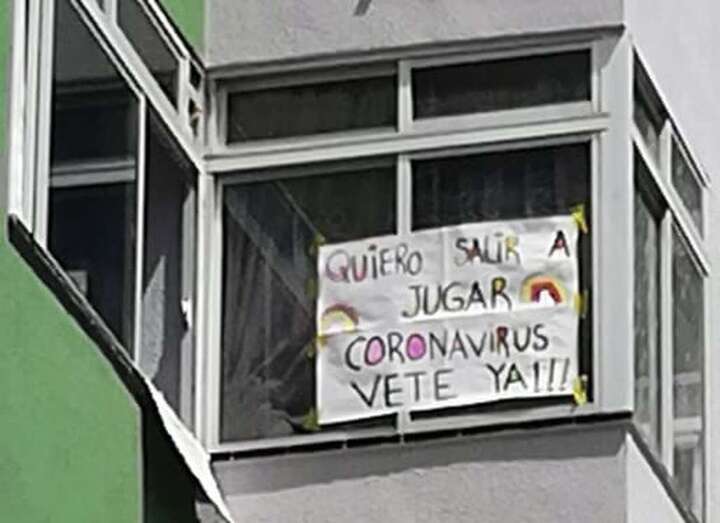 QUiERO SALIR A
JUGAR
CORONAVIRUS
VETE YA!!!